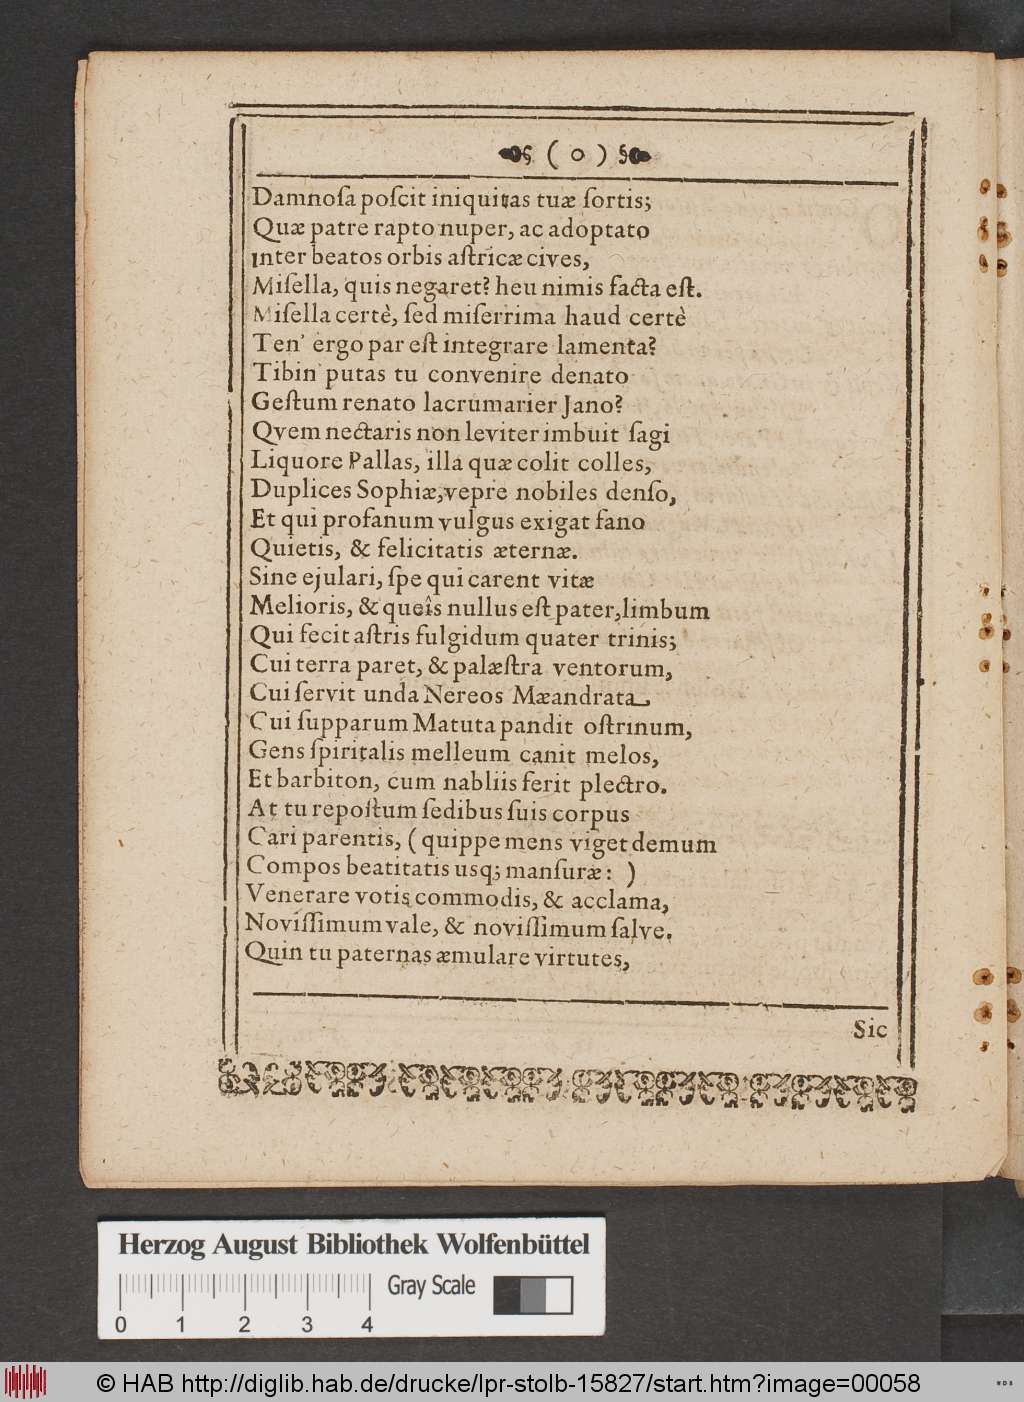 ( o )
Damnoſa poſcit iniquitas tuæ ſortis;
Quæ patre rapto nuper, ac adoptato
Inter beatos orbis aſtricæ cives,
Miſella, quis negaret? heu nimis facta eſt.
Miſella certè, ſed miſerrima haud certè
Ten' ergo par eſt integrare lamenta?
Tibin' putas tu convenire denato
Geſtum renato lacrumarier Jano?
Qvem nectaris non leviter imbuit ſagi
Liquore Pallas, illa quæ colit colles,
Duplices Sophiæ, vepre nobiles denſo,
Et qui profanum vulgus exigat fano
Quietis, & felicitatis æternæ.
Sine ejulari, ſpe qui carent vitæ
Melioris, & queîs nullus eſt pater, limbum
Qui fecit aſtris fulgidum quater trinis;
Cui terra paret, & palæſtra ventorum,
Cui ſervit unda Nereos Mæandrata
Cui ſupparum Matuta pandit oſtrinum,
Gens ſpiritalis melleum canit melos,
Et barbiton, cum nabliis ferit plectro.
At tu repoſtum ſedibus ſuis corpus
Cari parentis, ( quippe mens viget demum
Compos beatitatis usq; manſuræ: )
Venerare votis commodis, & acclama,
Noviſſimum vale, & noviſſimum ſalve.
Quin tu paternas æmulare virtutes,
Sic
Herzog August Bibliothek Wolfenbüttel
Gray Scale
0 1 2 3 4
© HAB http://diglib.hab.de/drucke/lpr-stolb-15827/start.htm?image=00058